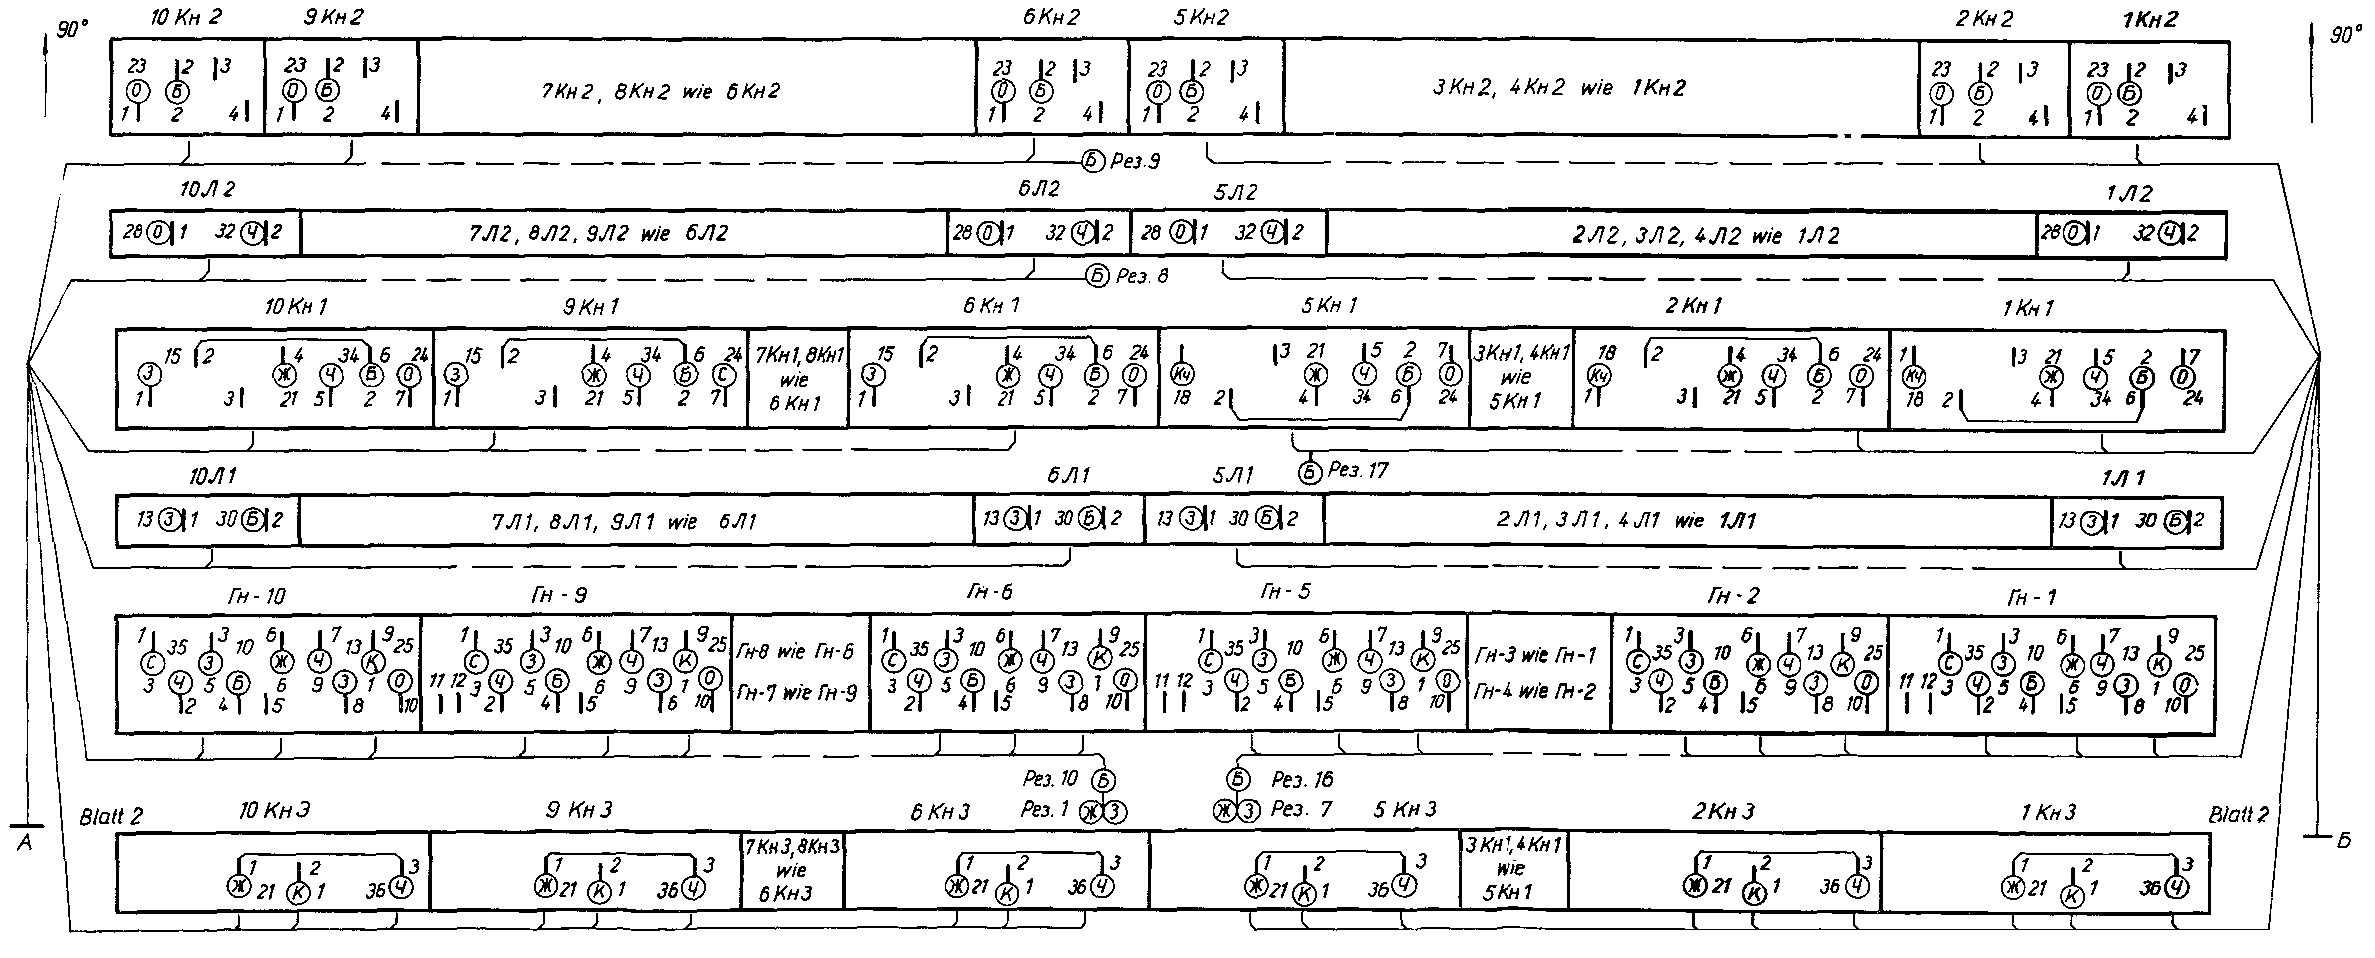 90°
10 Кн 2
9 Кн2
6Кн2
5Кн2
2Кн2
1Кн2
90°
23 2 3
О Б
1 2 4
23 2 3
О Б
1 2 4
7Кн2, 8Кн2 wie 6Кн2
23 2 3
О Б
1 2 4
23 2 3
О Б
1 2 4
3Кн2, 4Кн2 wie 1Кн2
23 2 3
О Б
1 2 4
23 2 3
О Б
1 2 4
Б Рез.9
10Л2
6Л2
5Л2
1Л2
28 О 1 32 Ч 2
7Л2, 8Л2, 9Л2 wie 6Л2
28 О 1 32 Ч 2
28 О 1 32 Ч 2
2Л2, 3Л2, 4Л2 wie 1Л2
28 О 1 32 Ч 2
Б Рез. 8
10Кн1
9Кн1
6Кн1
5Кн1
2Кн1
1Кн1
15 2 4 34 6 24
З Ж Ч Б О
1 3 21 5 2 7
15 2 4 34 6 24
З Ж Ч Б С
1 3 21 5 2 7
7Кн1, 8Кн1
wie
6Кн1
15 2 4 34 6 24
З Ж Ч Б О
1 3 21 5 2 7
3 21 5 2 7
Кч Ж Ч Б О
18 2 4 34 6 24
3Кн1, 4Кн1
wie
5Кн1
18 2 4 34 6 24
Кч Ж Ч Б О
1 3 21 5 2 7
1 3 21 5 2 7
Кч Ж Ч Б О
18 2 4 34 6 24
Б Рез. 17
10Л1
6Л1
5Л1
1Л1
13 З 1 30 Б 2
7Л1, 8Л1, 9Л1 wie 6Л1
13 З 1 30 Б 2
13 З 1 30 Б 2
2Л1, 3Л1, 4Л1 wie 1Л1
13 З 1 30 Б 2
Гн-10
Гн-9
Гн-6
Гн-5
Гн-2
Гн-1
1 35 3 10 6 7 13 9 25
С З Ж Ч К
3 Ч 5 Б 6 9 З 1 О
2 4 5 8 10
1 35 3 10 6 7 13 9 25
С З Ж Ч К
11 12 3 Ч 5 Б 6 9 З 1 О
2 4 5 6 10
Гн-8 wie Гн-6
Гн-7 wie Гн-9
1 35 3 10 6 7 13 9 25
С З Ж Ч К
3 Ч 5 Б 6 9 З 1 О
2 4 5 8 10
1 35 3 10 6 7 13 9 25
С З Ж Ч К
11 12 3 Ч 5 Б 6 9 З 1 О
2 4 5 8 10
Гн-3 wie Гн-1
Гн-4 wie Гн-2
1 35 3 10 6 7 13 9 25
С З Ж Ч К
3 Ч 5 Б 6 9 З 1 О
2 4 5 8 10
1 35 3 10 6 7 13 9 25
С З Ж Ч К
11 12 3 Ч 5 Б 6 9 З 1 О
2 4 5 8 10
Рез. 10 Б
Рез. 1 Ж З
Б Рез. 16
Ж З Рез. 7
Blatt 2
10 Кн3
9 Кн3
6 Кн3
5 Кн3
2Кн3
1Кн3
Blatt 2
А
Б
1 2 3
Ж 21 К 1 36 Ч
1 2 3
Ж 21 К 1 36 Ч
7Кн3, 8Кн3
wie
6Кн3
1 2 3
Ж 21 К 1 36 Ч
1 2 3
Ж 21 К 1 36 Ч
3Кн1, 4Кн1
wie
5Кн1
1 2 3
Ж 21 К 1 36 Ч
1 2 3
Ж 21 К 1 36 Ч